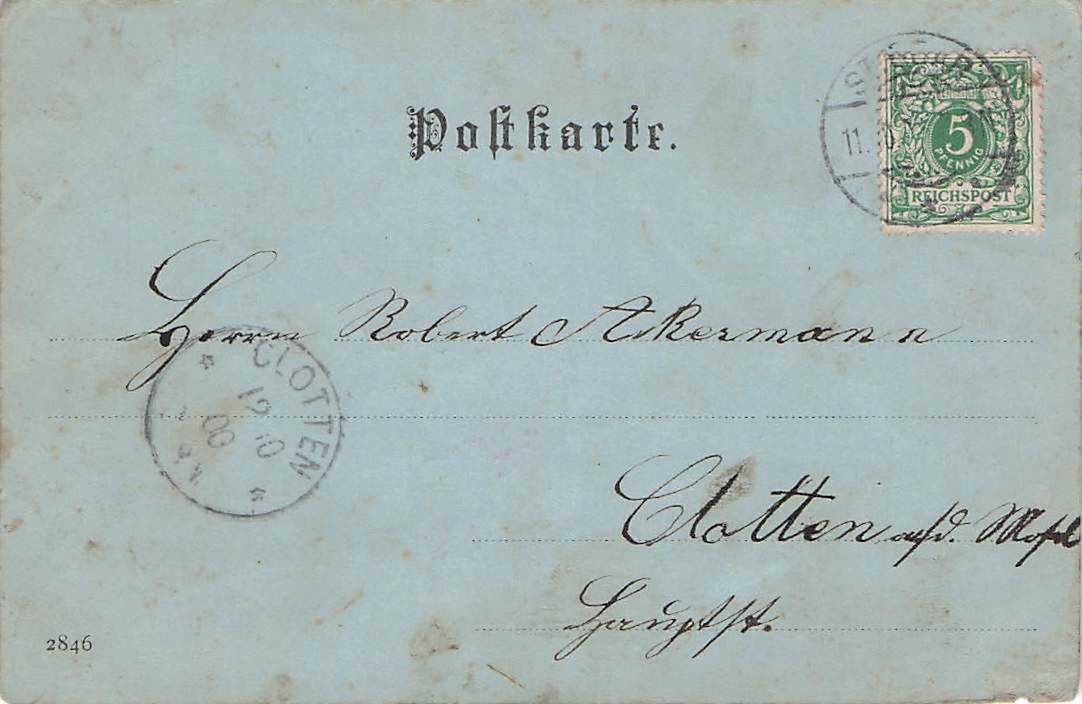 Postkarte.
5
PFENNIG
REICHSPOST
11.
Herrn Robert Ackermann
CLOTTEN
12 10
00
Clotten a/d. Mosel
Hauptst.
2846